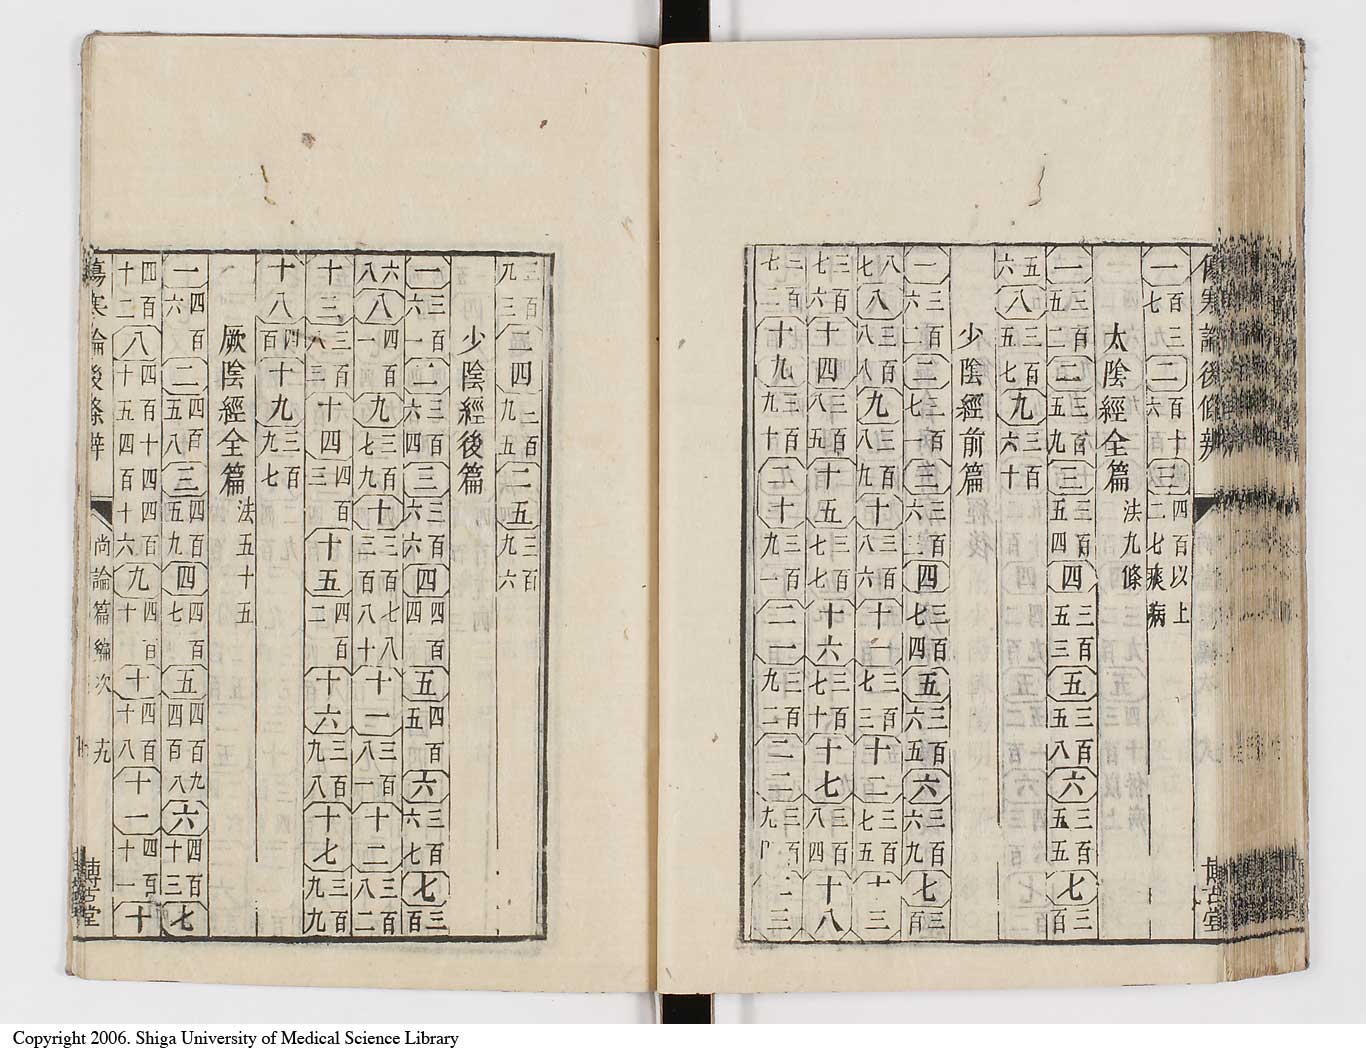 傷寒論後條辨 博古堂
一百三七二百十六三四百以上二七痰病
太陰經全篇 法九條
一三百五二二三百五九三三百五四四三百五三五三百五八六三百五五七三百
五六八三百五七九三百六十
少陰經前篇
一三百六二二三百七一三三百六三四三百七四五三百六五六三百六九七三百
七八八三百八八九三百八九十三百八六十一三百七三十二三百七五十三
三百七六十四三百八五十五三百七七十六三百七十十七三百八四十八
三百七二十九三百九十二十三百九一二一三百九二二二三百九 二三
三百九三二四三百九五二五三百九六
少陰經後篇
一三百六一二三百六四三三百六六四四百四五四百五六三百六七七三百
六八八四百一九三百七九十三百七八三百八十十一三百八一十二三百八二
十三三百八三十四四百三十五四百二十六三百九八十七三百九九
十八四百十九三百九七
厥陰經全篇 法五十五
一四百六二四百五八三四百五九四四百七五四百九四百八六四百十三七
四百十二八四百十四四百十五四百十六九四百十十四百十八十一四百十一十
傷寒論後條辨 尚論篇編次 十九 博古堂
Copyright 2006. Shiga University of Medical Science Library